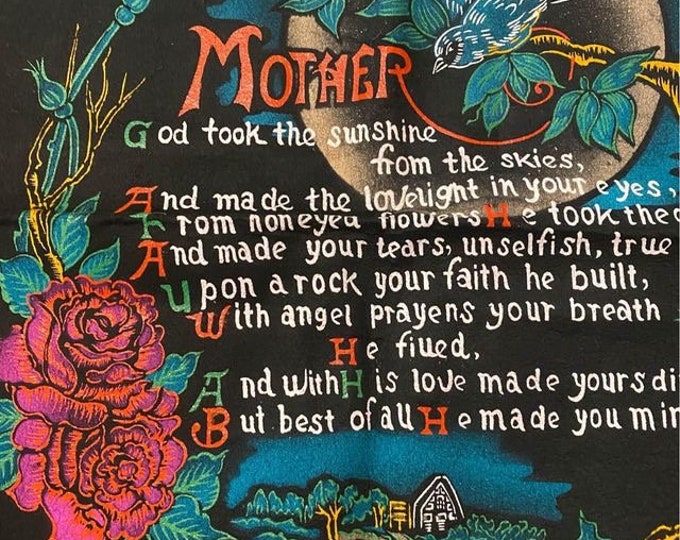 MOTHER
God took the sunshine
from the skies,
And made the lovelight in your eyes,
From honeyed flowers He took the
And made your tears, unselfish, true
Upon a rock your faith he built,
With angel prayens your breath
He filled,
And with His love made yours
But best of all He made you